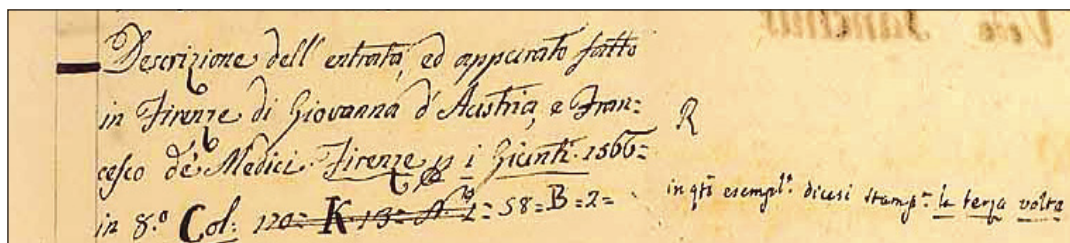 Descrizione dell' entrata, ed apparato fatto
in Firenze di Giovanna d'Austria, e Fran=
cesco de' Medici Firenze i Giunti. 1566=
R
in 8.º Col: 120= K=13= N.º 2= 58= B=2=
in qtō esempl.e dicesi stamp.ª la terza volta